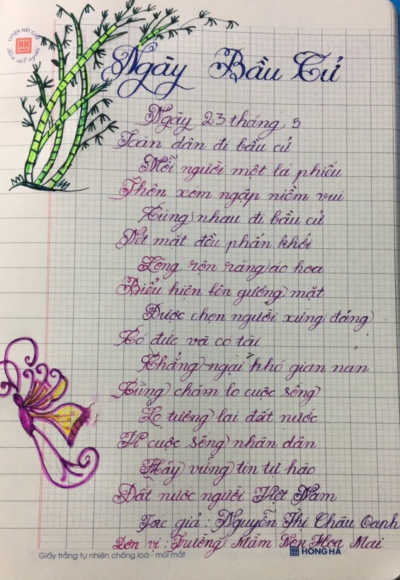 LUYỆN VIẾT CHỮ ĐẸP
Ngày Bầu Cử
Ngày 23 tháng 5
Toàn dân đi bầu cử
Mỗi người một lá phiếu
Thôn xóm ngập niềm vui
Cùng nhau đi bầu cử
Nét mặt đều phấn khởi
Lòng rộn ràng áo hoa
Biểu hiện lên gương mặt
Được chọn người xứng đáng
Có đức và có tài
Chẳng ngại khó gian nan
Cùng chăm lo cuộc sống
Lo tương lai đất nước
Vì cuộc sống nhân dân
Hãy vững tin tự hào
Đất nước người Việt Nam
Tác giả : Nguyễn Thị Châu Oanh
Đơn vị : Trường Mầm Non Hoa Mai
Giấy trắng tự nhiên chống loá - mỏi mắt
HỒNG HÀ